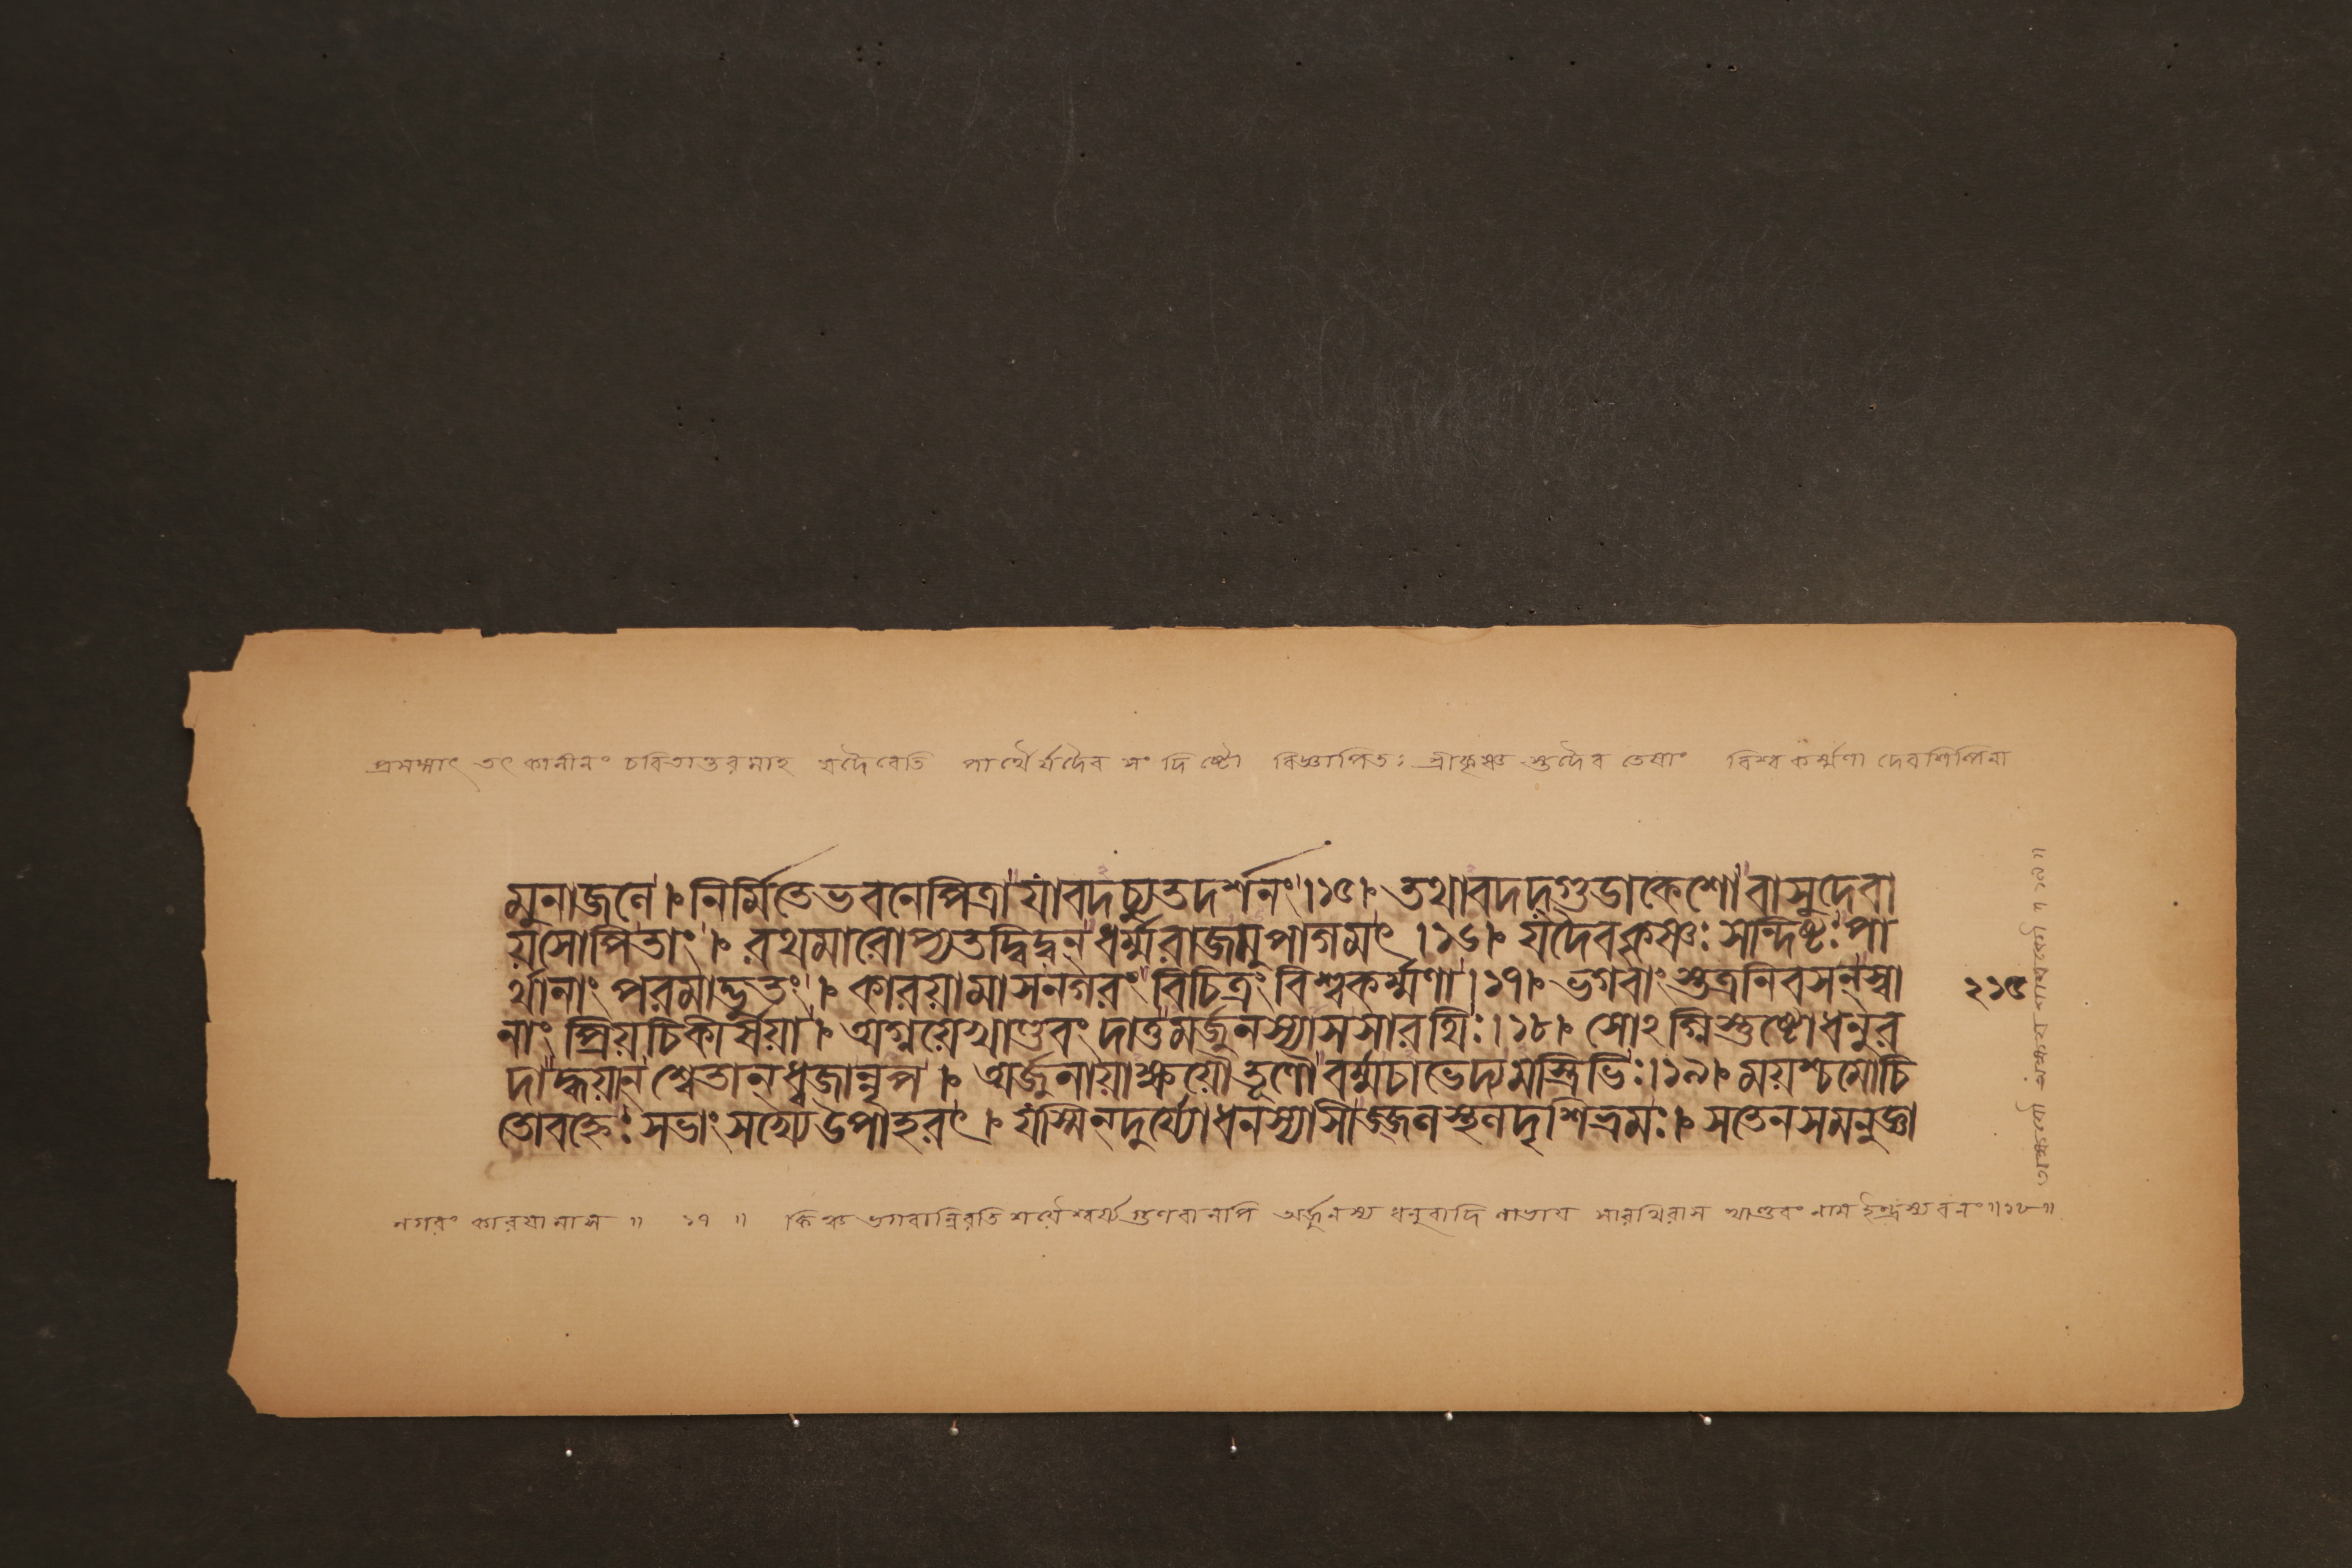 প্রসঙ্গাৎ তৎ কালীনং চরিতান্তরমাহ যদৈবেতি পার্থৈর্যদৈব সংদিষ্টো বিজ্ঞাপিতঃ শ্রীকৃষ্ণ স্তদৈব তেষাং বিশ্বকর্ম্মণা দেবশিল্পিনা
মুনাজনে । নির্মিতেভবনেপিত্রা যাবদচ্যুতদর্শনং ।১৫। তথাবদদ্গুডাকেশো বাসুদেবা
য়সোপিতাং । রথমারোপ্যতদ্বিদ্বন্ ধর্ম্মরাজমুপাগমৎ ।১৬। যদৈবকৃষ্ণঃ সন্দিষ্টঃ পা
র্থানাং পরমাদ্ভুতং । কারয়ামাসনগরং বিচিত্রং বিশ্বকর্ম্মণা ।১৭। ভগবাংস্তত্রনিবসন্স্বা
নাং প্রিয়চিকীর্সয়া । অগ্নয়েখাণ্ডবং দাতুমর্জুনস্যাসসারথিঃ ।১৮। সোঽগ্নিস্তুষ্টোধনুর
দাদ্ধয়ান্ শ্বেতান্ধ্বজান্নৃপ । অর্জুনায়াক্ষয়ৌতূণৌ বর্ম্মচাভেদ্যমস্ত্রিভিঃ ।১৯। ময়শ্চমোচি
তোবহ্নেঃ সভাং সখ্যেউপাহরৎ । যস্মিন্দুর্য্যোধনস্যাসীজ্জলস্থলদৃশিভ্রমঃ । সতেনসমনুজ্ঞা
২১৫
নগরং কারয়ামাস ॥ ১৭ ॥ কিঞ্চ ভগবান্নিরতিশয়ৈশ্বর্য্যগুণবানপি অর্জুনস্য ধনুরাদি লাভায় সারথিরাস খাণ্ডবং নাম ইন্দ্রস্য বনং ॥১৮॥